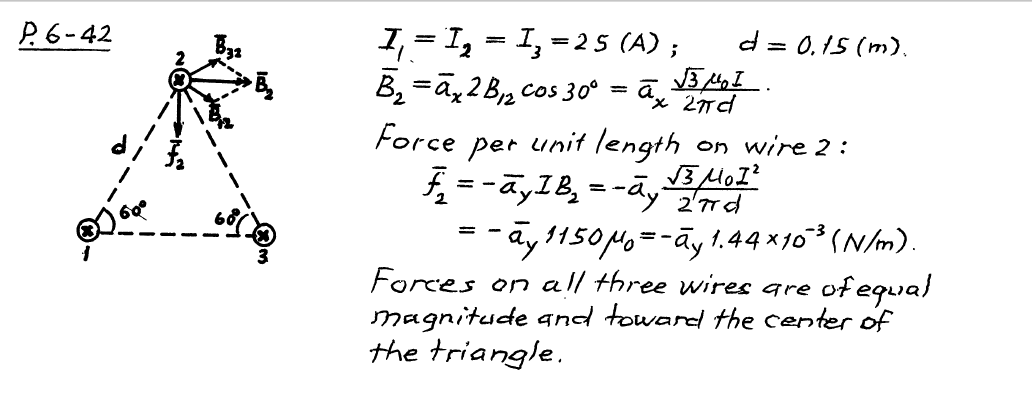 P. 6-42
2
B̄₃₂
B̄₂
B̄₁₂
d
f̄₂
60°
60°
1
3
I₁ = I₂ = I₃ = 25 (A) ; d = 0.15 (m).
B̄₂ = āₓ 2 B₁₂ cos 30° = āₓ √3 μ₀I / 2πd .
Force per unit length on wire 2 :
f̄₂ = -ā_y I B₂ = -ā_y √3 μ₀I² / 2πd
= - ā_y 1150 μ₀ = -ā_y 1.44 × 10⁻³ (N/m).
Forces on all three wires are of equal
magnitude and toward the center of
the triangle.